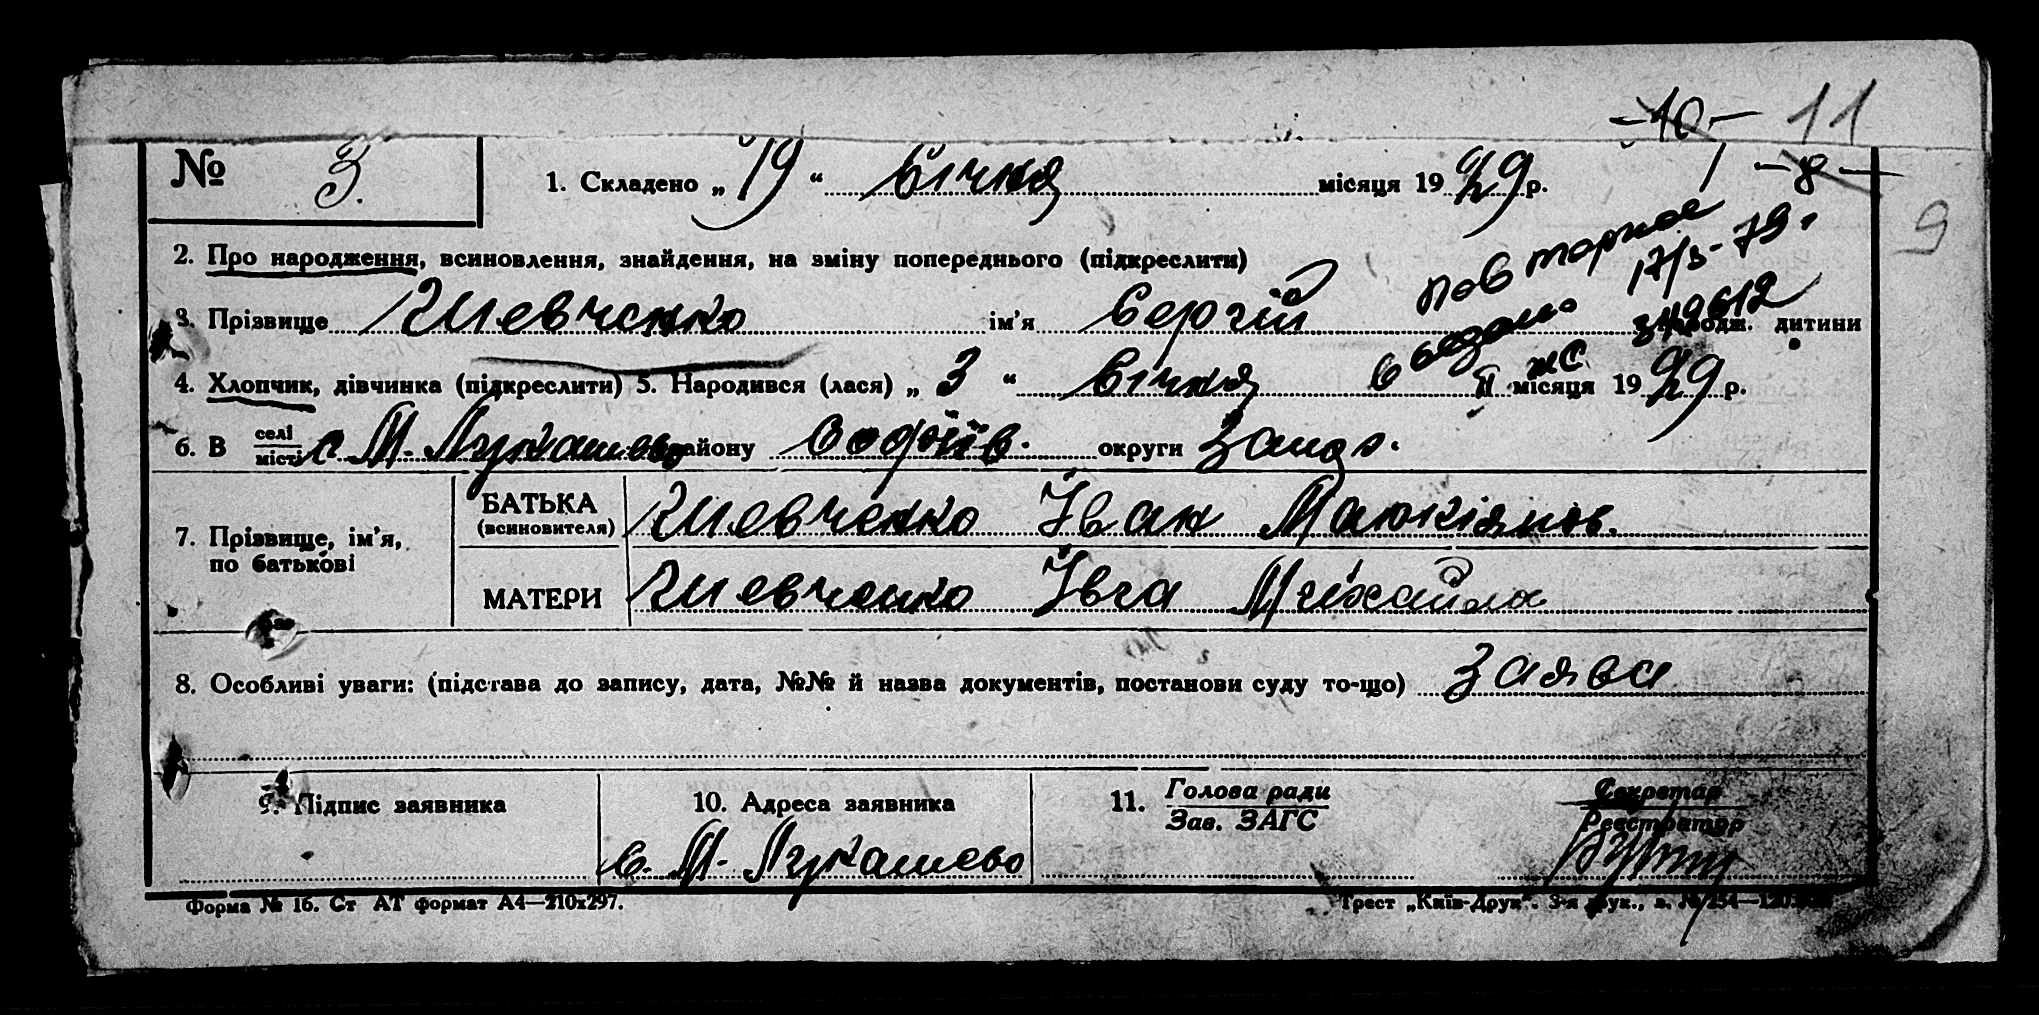 -10- 11
№ 3. 1. Складено „ 19 “ Січня місяця 1929 р. 1 -8-
9
2. Про народження, всиновлення, знайдення, на зміну попереднього (підкреслити)
повторное 17/3-79.
3. Прізвище Шевченко ім'я Сергій народж. дитини
II ЖС 349612
4. Хлопчик, дівчинка (підкреслити) 5. Народився (лася) „ 3 “ Січня місяця 1929 р.
6. В селі місті с. М. Лукашево району Софіїв. округи Запор.
7. Прізвище, ім'я, по батькові
БАТЬКА (всиновителя) Шевченко Іван
МАТЕРИ Шевченко Івга Михайлов
8. Особливі уваги: (підстава до запису, дата, №№ й назва документів, постанови суду то-що) Заява
9. Підпис заявника 10. Адреса заявника 11. Голова ради Зав. ЗАГС Секретар Реєстратор
с. М. Лукашево
Форма № 16. Ст АТ формат А4—210х297. Трест „Київ-Друк“. 3-я друк.,